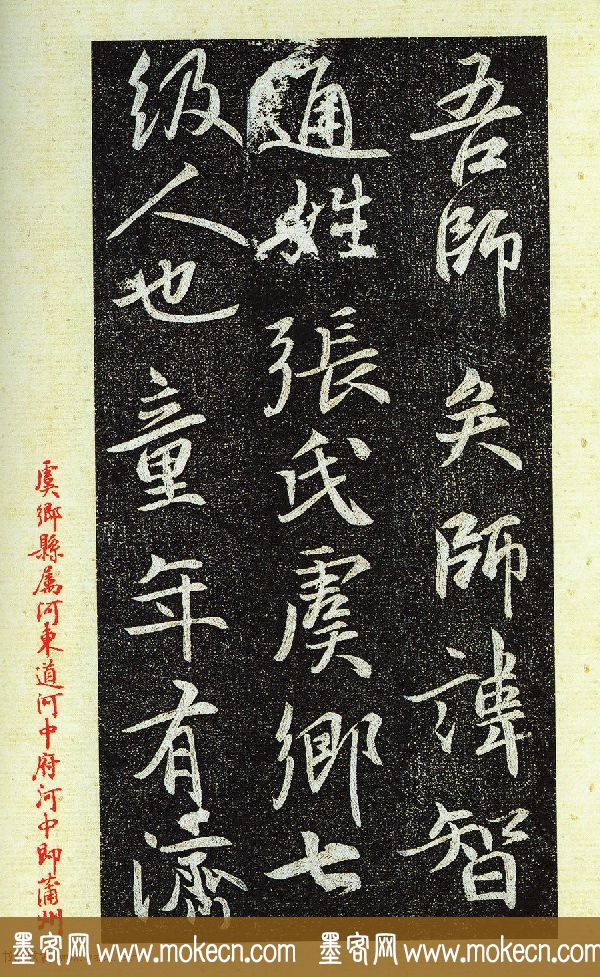 吾師矣師諱智
通姓張氏虞鄉七
级人也童年有濟
虞鄉縣屬河東道河中府河中即蒲州
墨客网 www.mokecn.com 墨客网 www.mokecn.com